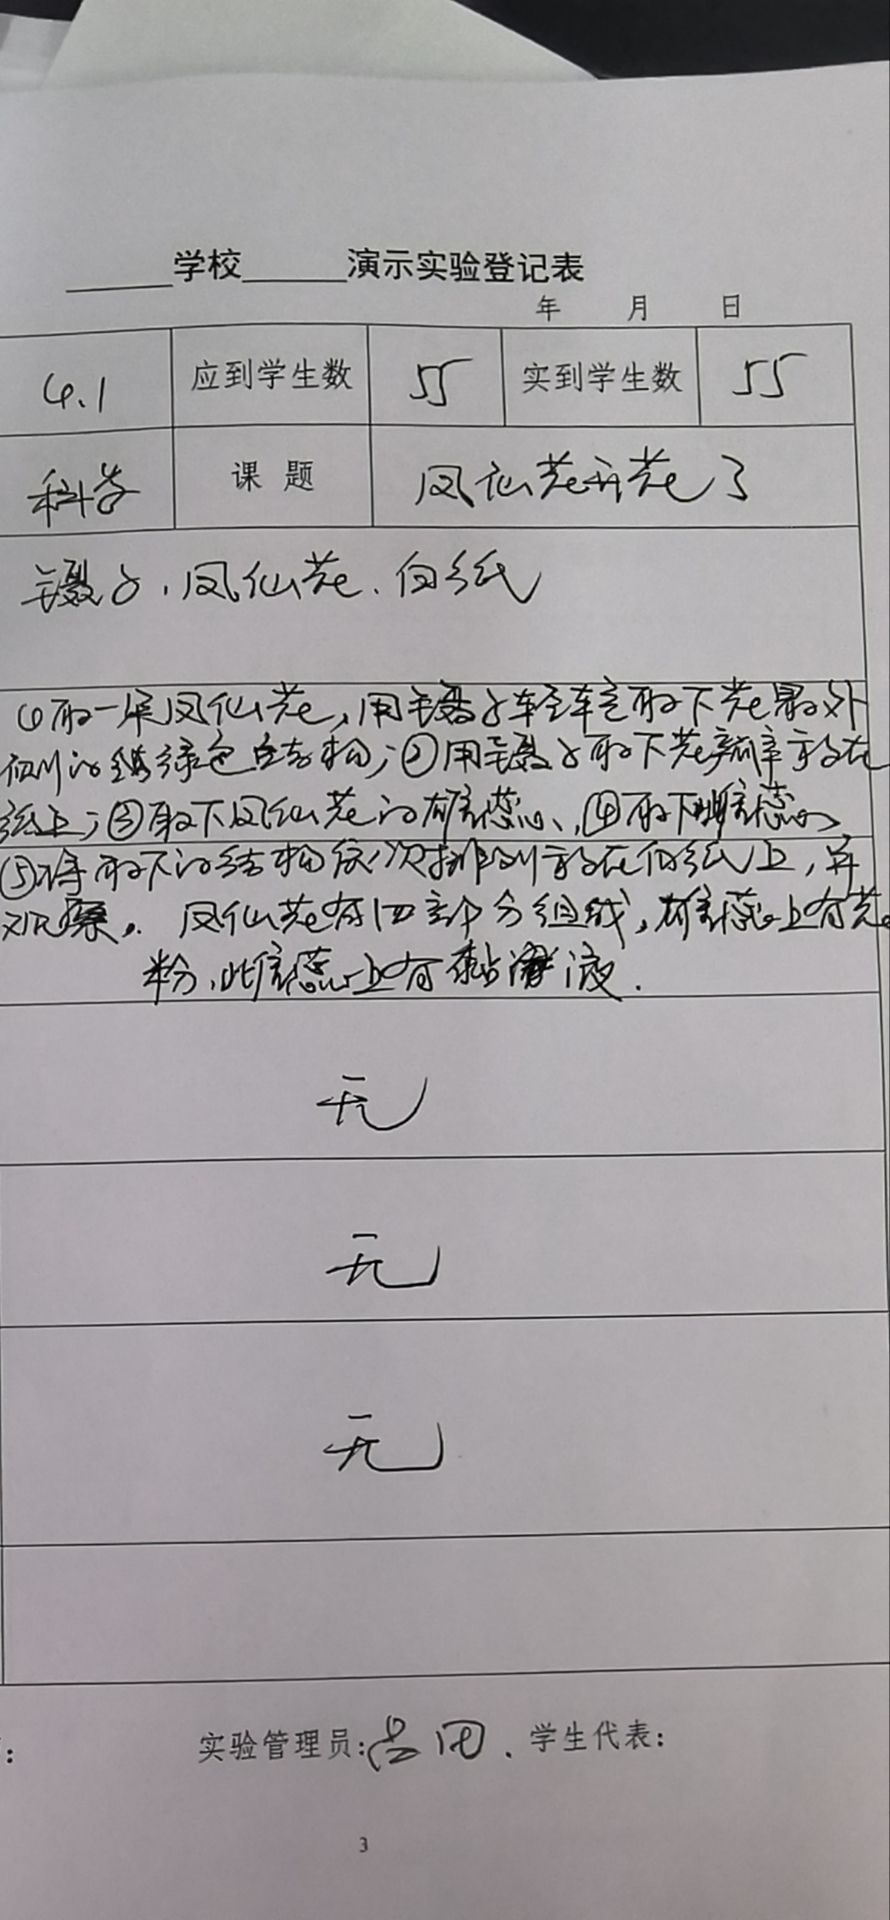 ______学校______演示实验登记表
年 月 日
4.1 应到学生数 55 实到学生数 55
科学 课 题 凤仙花开花了
镊子、凤仙花、白纸
①取一朵凤仙花,用镊子轻轻取下花最外
侧的绿色结构;②用镊子取下花瓣放在
纸上;③取下凤仙花的雄蕊、④取下雌蕊
⑤将取下的结构依次排列放在白纸上,并
观察。凤仙花有四部分组成,雄蕊上有花
粉,雌蕊上有黏液.
无
无
无
: 实验管理员: 学生代表:
3